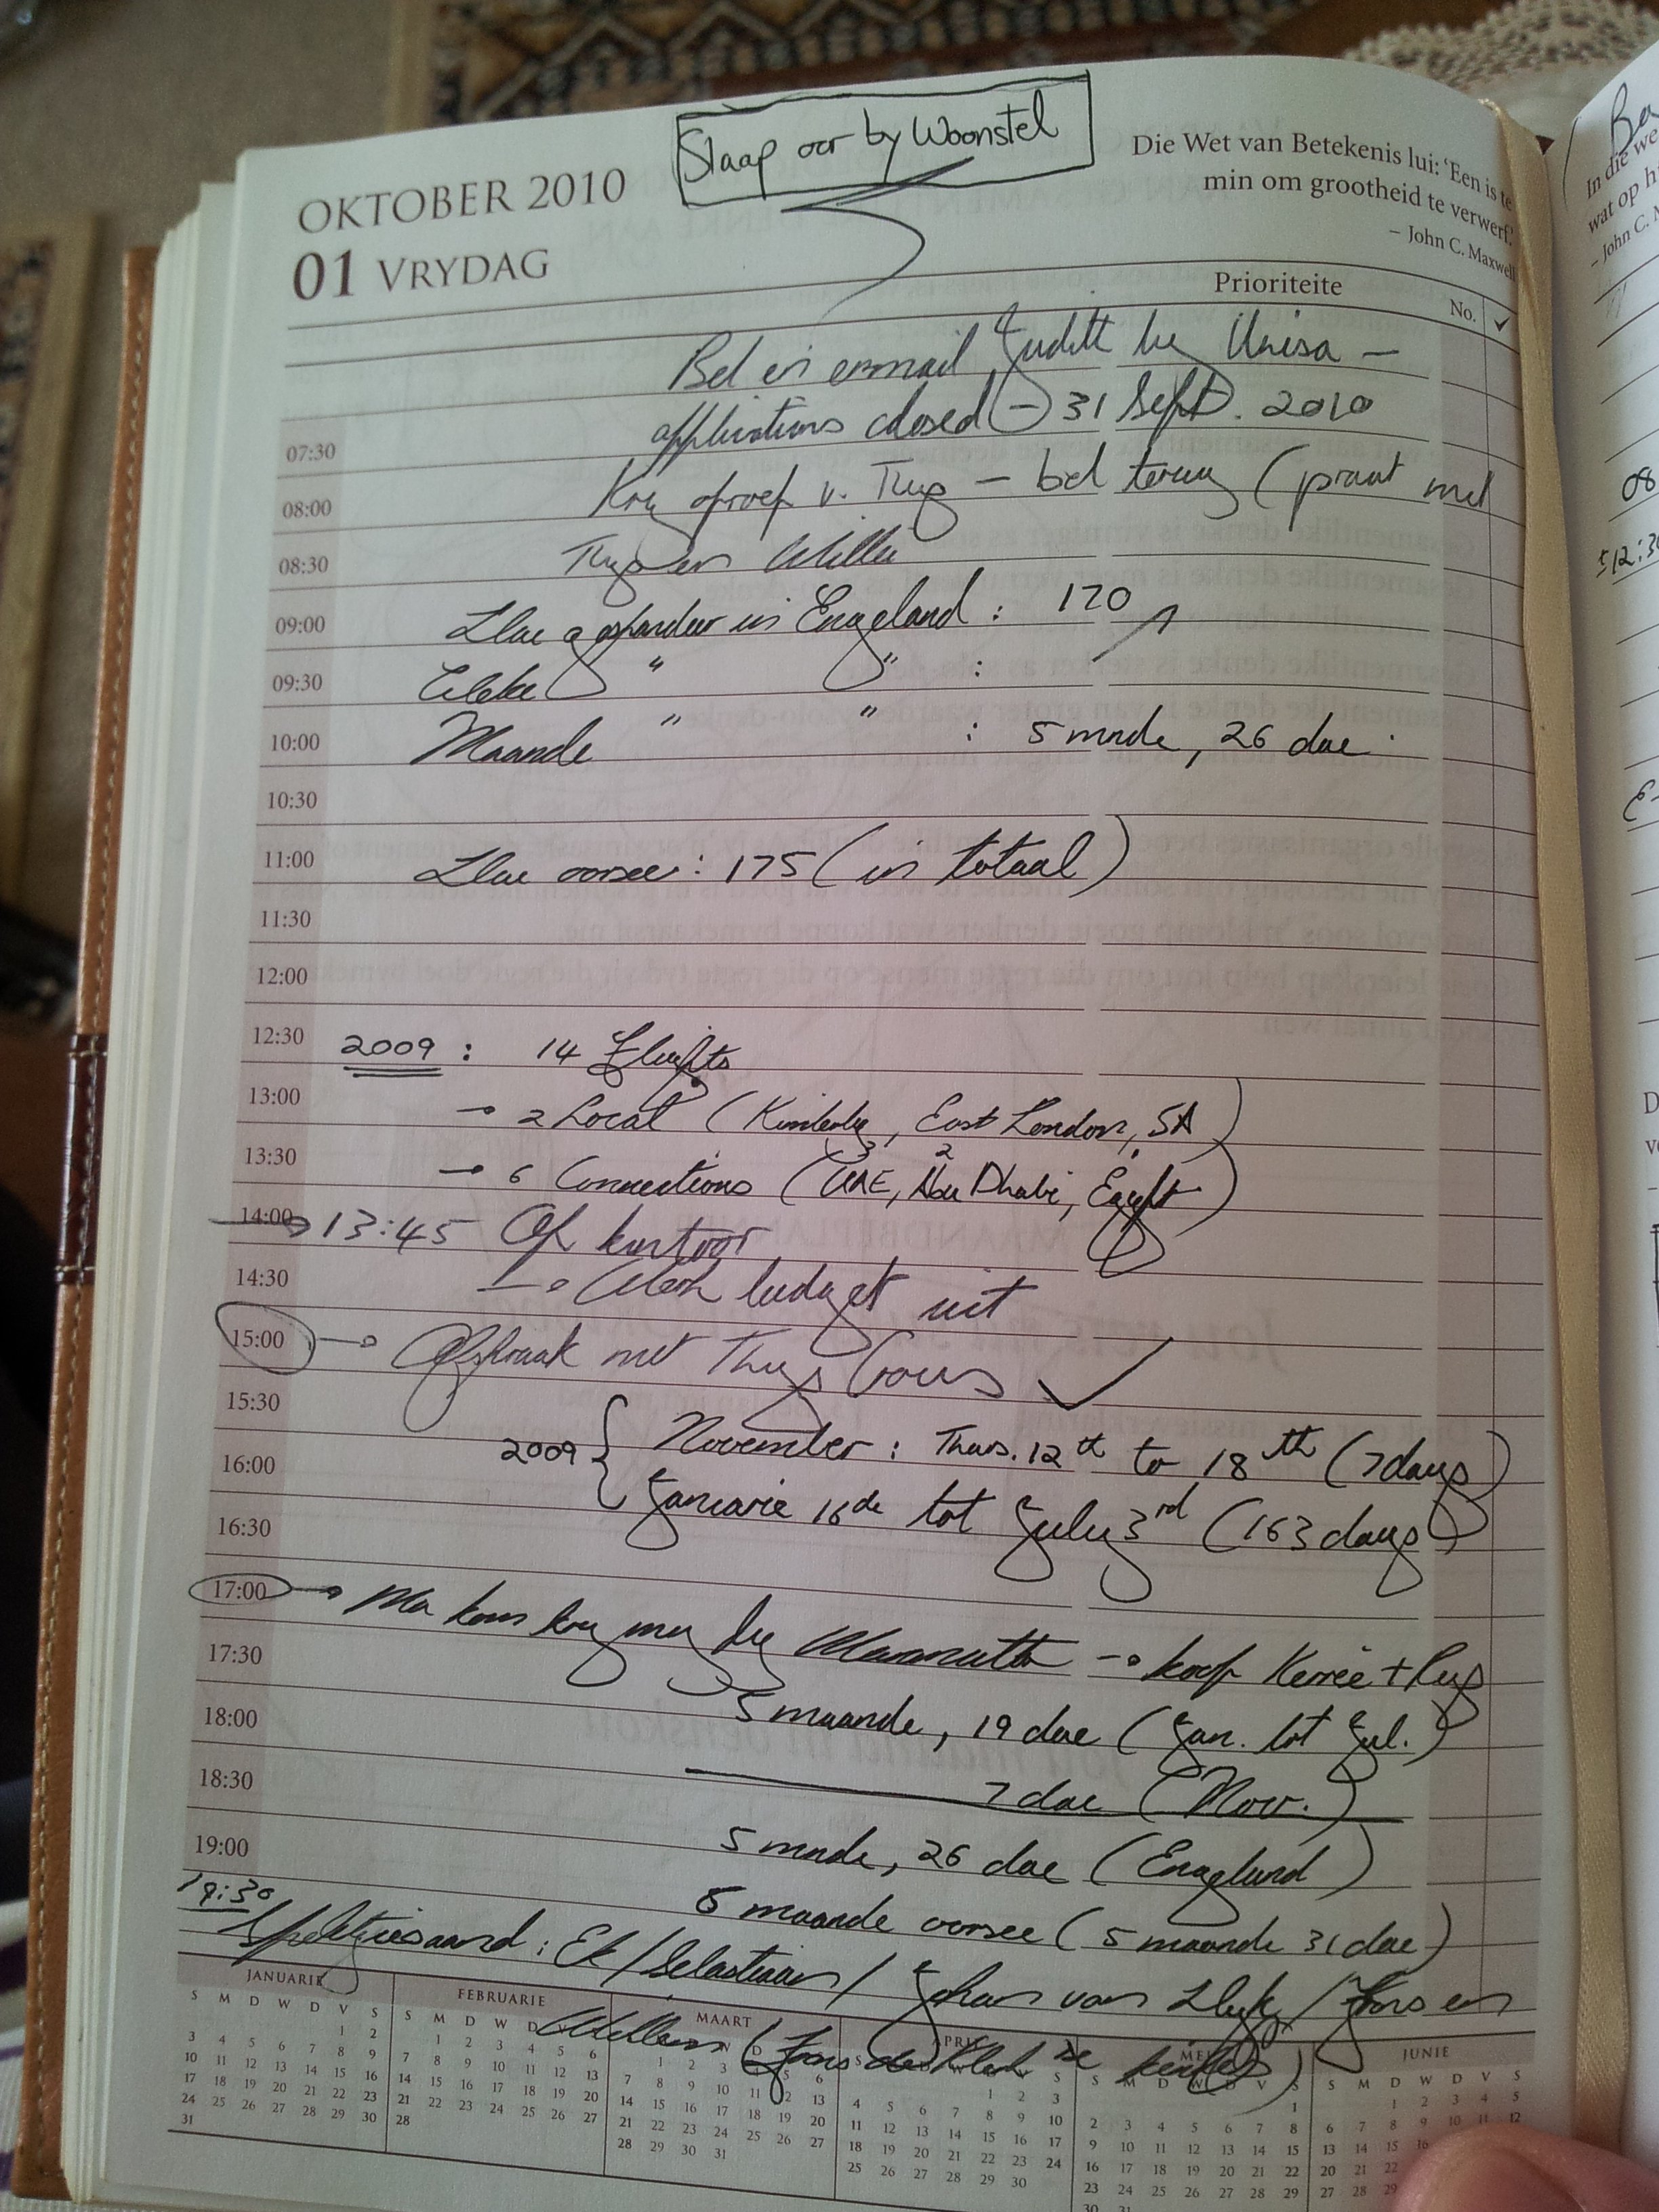 Slaap oor by Woonstel
OKTOBER 2010
01 VRYDAG
Die Wet van Betekenis lui: 'Een is te
min om grootheid te verwerf.'
– John C. Maxwell
Prioriteite
No. ✓
Bel en e-mail Judith by Unisa –
applications closed – 31 Sept. 2010
07:30
Kry oproep v. Thys – bel terug (praat met
08:00
Thys en Willie
08:30
09:00 Dae gespandeer in Engeland : 170
09:30 Weke " " :
10:00 Maande " " : 5 mnde, 26 dae
10:30
11:00 Dae oorsee: 175 (in totaal)
11:30
12:00
12:30 2009 : 14 Flights
13:00 → 2 Local (Kimberley, East London, SA)
13:30 → 6 Connections (UAE, Abu Dhabi, Egypt)
3 2 1
14:00 → 13:45 Op kantoor
14:30 → Werk budget uit
15:00 → Afspraak met Thys Gous ✓
15:30
2009 { November: Thurs. 12th to 18th (7 days)
16:00
Januarie 16de tot July 3rd (163 days)
16:30
17:00 → Ma kom kry my by → koop Kerrie + Rys
17:30
5 maande, 19 dae (Jan. tot Jul.)
18:00
7 dae (Nov.)
18:30
5 mnde, 26 dae (Engeland)
19:00
6 maande oorsee (5 maande 31 dae)
19:30
: Ek / Sebastiaan / Johan van Dyk / Fons en
Willem (Fons de Klerk se)
JANUARIE
S M D W D V S
1 2
3 4 5 6 7 8 9
10 11 12 13 14 15 16
17 18 19 20 21 22 23
24 25 26 27 28 29 30
31
FEBRUARIE
S M D W D V S
1 2 3 4 5 6
7 8 9 10 11 12 13
14 15 16 17 18 19 20
21 22 23 24 25 26 27
28
MAART
1 2 3 4 5 6
7 8 9 10 11 12 13
14 15 16 17 18 19 20
21 22 23 24 25 26 27
28 29 30 31
1 2 3
4 5 6 7 8 9 10
11 12 13 14 15 16 17
18 19 20 21 22 23 24
25 26 27 28 29 30
MEI
S M D W D V S
1
2 3 4 5 6 7 8
9 10 11 12 13 14 15
16 17 18 19 20 21 22
23 24 25 26 27 28 29
30 31
JUNIE
S M D W D V S
1 2 3 4 5
6 7 8 9 10 11 12
13 14 15 16
20 21 22
27 28 29
In die we
wat op h
– John C. M
08
±12:30